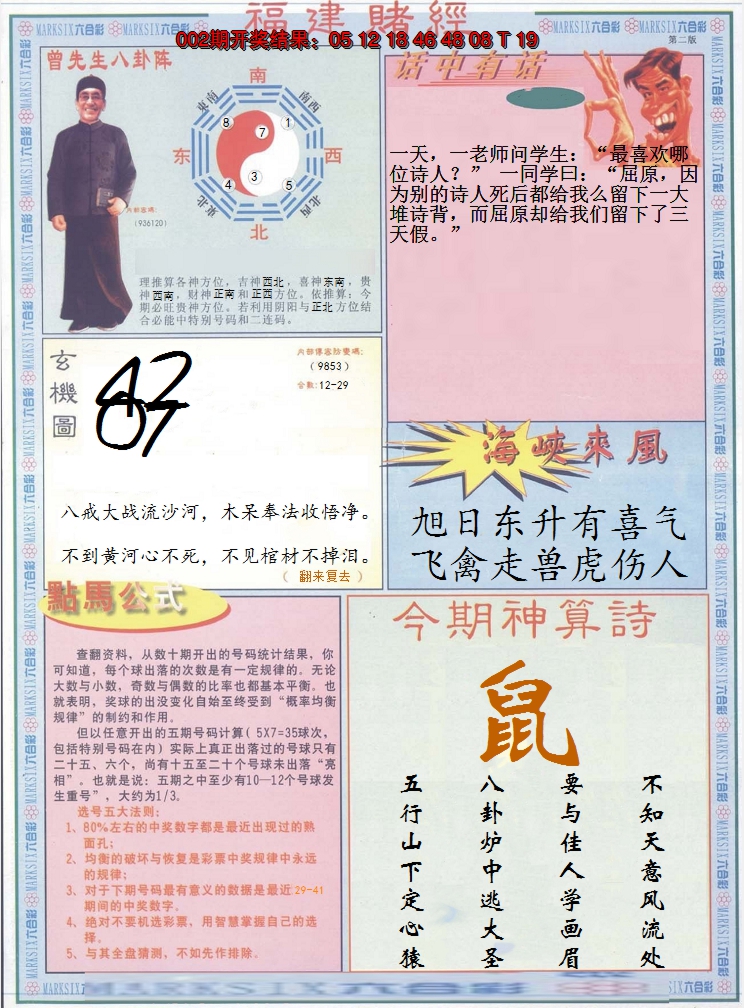 福建賭經
002期开奖结果：05 12 18 46 48 08 T 19
第二版
MARKSIX六合彩
曾先生八卦阵
南
东南
南西
8
7
1
东
西
4
3
5
东北
北西
北
内部密码:
(936120)
理推算各神方位，吉神西北，喜神东南，贵
神西南，财神正南和正西方位。依推算：今
期必旺贵神方位。若利用阴阳与正北方位结
合必能中特别号码和二连码。
话中有话
一天，一老师问学生：“最喜欢哪
位诗人？” 一同学曰：“屈原，因
为别的诗人死后都给我么留下一大
堆诗背，而屈原却给我们留下了三
天假。”
玄機圖
(9853)
合数:12-29
八戒大战流沙河，木呆奉法收悟净。
不到黄河心不死，不见棺材不掉泪。
（ 翻来复去 ）
海峽來風
旭日东升有喜气
飞禽走兽虎伤人
點馬公式
查翻资料，从数十期开出的号码统计结果，你
可知道，每个球出落的次数是有一定规律的。无论
大数与小数，奇数与偶数的比率也都基本平衡。也
就表明，奖球的出没变化自始至终受到“概率均衡
规律”的制约和作用。
但以任意开出的五期号码计算( 5X7=35球次，
包括特别号码在内）实际上真正出落过的号球只有
二十五、六个，尚有十五至二十个号球未出落“亮
相”。也就是说：五期之中至少有10—12个号球发
生重号”，大约为1/3。
选号五大法则：
1、80%左右的中奖数字都是最近出现过的熟
面孔；
2、均衡的破坏与恢复是彩票中奖规律中永远
的规律；
3、对于下期号码最有意义的数据是最近29-41
期间的中奖数字。
4、绝对不要机选彩票，用智慧掌握自己的选
择。
5、与其全盘猜测，不如先作排除。
今期神算詩
鼠
不知天意风流处
要与佳人学画眉
八卦炉中逃大圣
五行山下定心猿